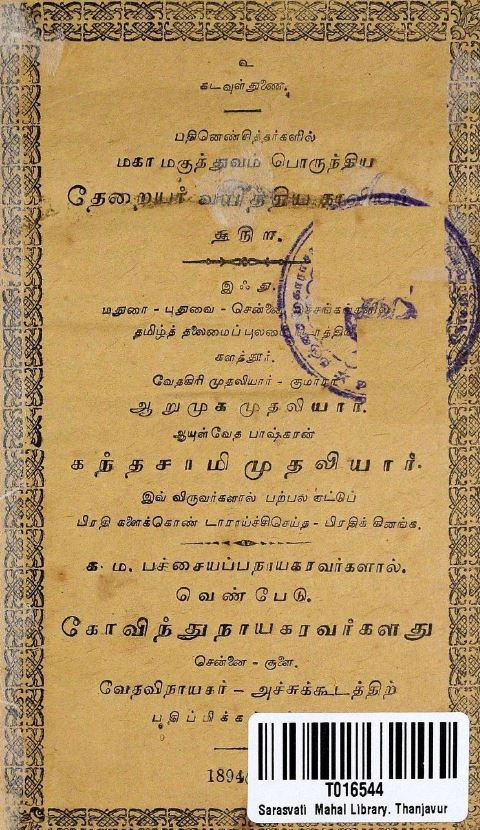 உ
கடவுள்துணை.
பதினெண்சித்தர்களில்
மகா மகுத்துவம் பொருந்திய
தேறையர்
இஃது.
மதுரை - புதுவை - சென்னை
தமிழ்த் தலைமைப்புலமை
களத்தூர்.
வேதகிரி முதலியார் - குமாரர்
ஆறுமுக முதலியார்.
ஆயுள்வேத பாஷ்கரன்
கந்தசாமி முதலியார்.
இவ் விருவர்களால் பற்பல
பிரதி களைக்கொண் டாராய்ச்சிசெய்த - பிரதிக் கிணங்க.
க. ம. பச்சையப்பநாயகரவர்களால்.
வெண்பேடு.
கோவிந்துநாயகரவர்களது
சென்னை - சூளை.
வேதவிநாயகர் - அச்சுக்கூடத்திற்
பதிப்பிக்க
1894
T016544
Sarasvati Mahal Library, Thanjavur